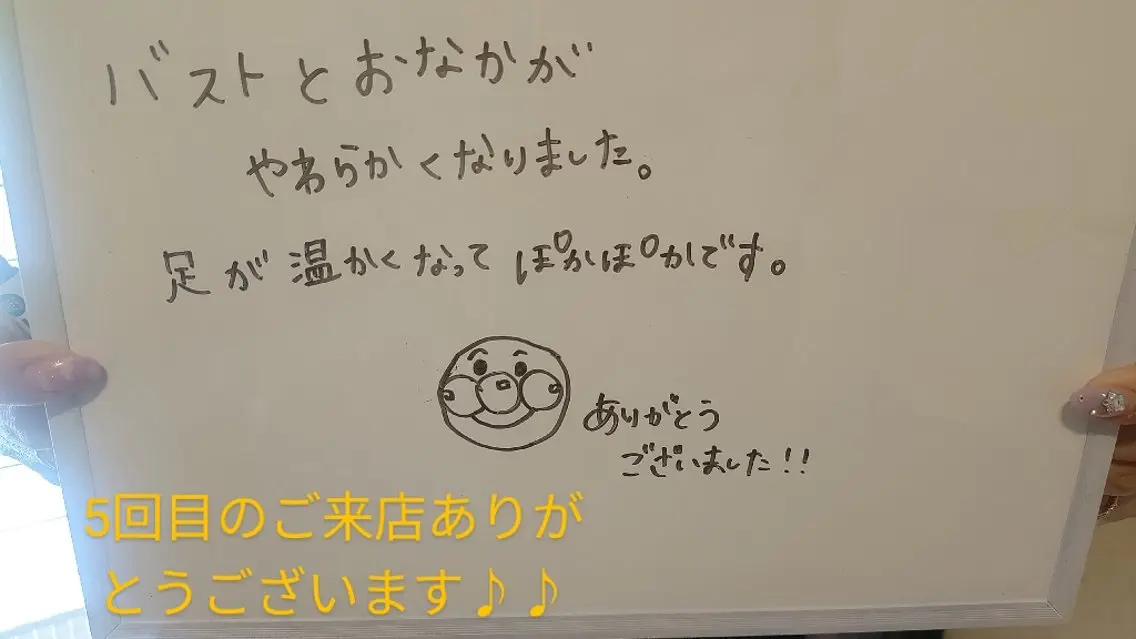 バストとおなかが
やわらかくなりました。
足が温かくなってぽかぽかです。
ありがとう
ございました!!
5回目のご来店ありが
とうございます♪♪